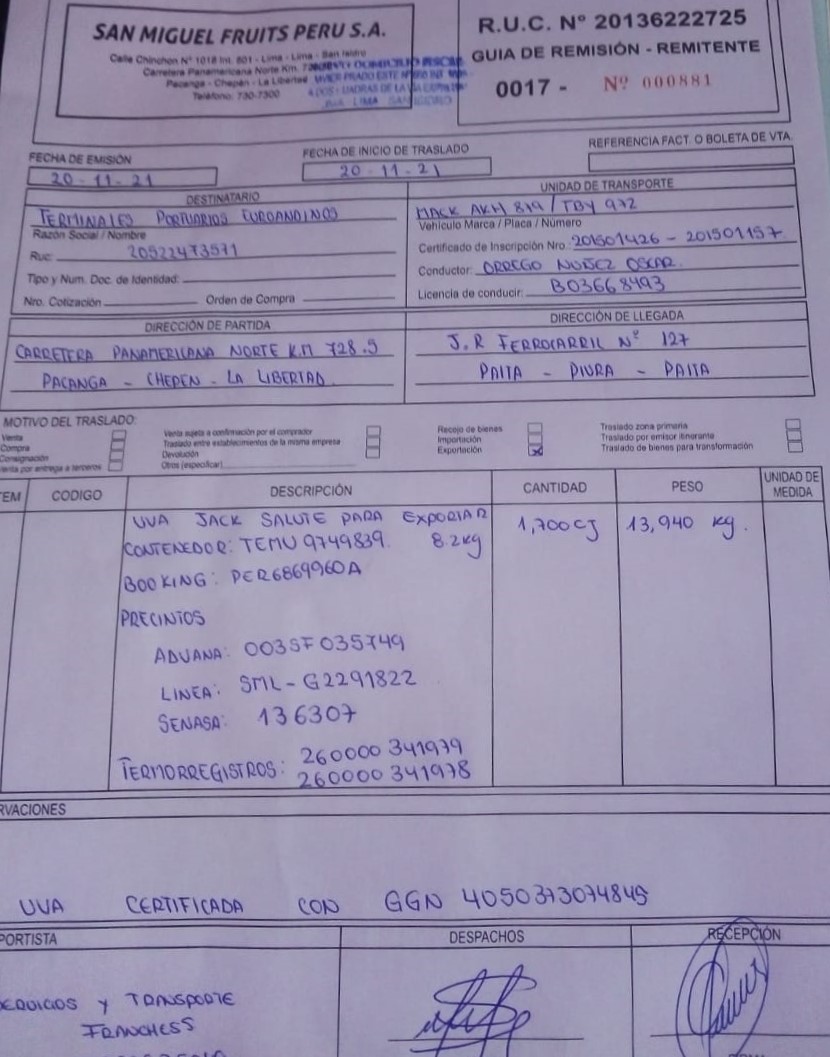 SAN MIGUEL FRUITS PERU S.A.
Calle Chinchon N° 1018 Int. 601 - Lima - Lima - San Isidro
Carretera Panamericana Norte Km.
Pacanga - Chepén - La Libertad
Teléfono: 730-7300
R.U.C. N° 20136222725
GUIA DE REMISIÓN - REMITENTE
0017 - Nº 000881
FECHA DE EMISIÓN
20-11-21
FECHA DE INICIO DE TRASLADO
20-11-21
REFERENCIA FACT. O BOLETA DE VTA.
DESTINATARIO
TERMINALES PORTUARIOS EUROANDINOS
Razón Social / Nombre
Ruc: 20522473571
Tipo y Num. Doc. de Identidad:
Nro. Cotización Orden de Compra
UNIDAD DE TRANSPORTE
MACK AKH 819 / TBY 972
Vehículo Marca / Placa / Número
Certificado de Inscripción Nro. 201501426 - 201501157
Conductor: ORREGO NUÑEZ OSCAR.
Licencia de conducir: B03668493
DIRECCIÓN DE PARTIDA
CARRETERA PANAMERICANA NORTE K.M 728.5
PACANGA - CHEPEN - LA LIBERTAD
DIRECCIÓN DE LLEGADA
J.R FERROCARRIL N° 127
PAITA - PIURA - PAITA
MOTIVO DEL TRASLADO:
Venta
Compra
Consignación
enta por entrega a terceros
Venta sujeta a confirmación por el comprador
Traslado entre establecimientos de la misma empresa
Devolución
Otros (especificar)
Recojo de bienes
Importación
Exportación
Traslado zona primaria
Traslado por emisor itinerante
Traslado de bienes para transformación
TEM CODIGO DESCRIPCIÓN CANTIDAD PESO UNIDAD DE MEDIDA
UVA JACK SALUTE PARA EXPORTAR 1,700 CJ 13,940 kg.
CONTENEDOR: TEMU 9749839. 8.2kg
BOOKING: PER6869960A
PRECINTOS
ADUANA: 003SF035749
LINEA: SML-G2291822
SENASA: 136307
TERMORREGISTROS: 260000 341979
260000 341978
RVACIONES
UVA CERTIFICADA CON GGN 4050373074845
PORTISTA
DESPACHOS
RECEPCIÓN
SERVICIOS Y TRANSPORTE
FRANCHESS